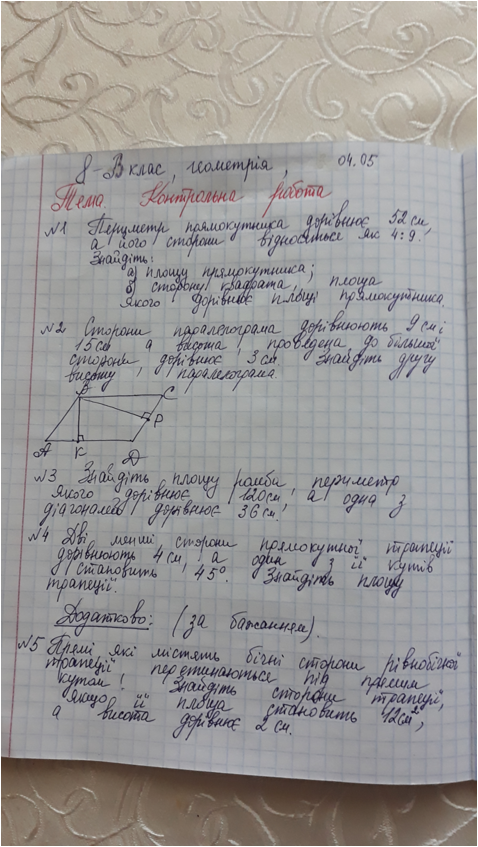 8-В клас, геометрія, 04.05
Тема. Контрольна робота
№1 Периметр прямокутника дорівнює 52см,
а його сторони відносяться як 4:9.
Знайдіть:
а) площу прямокутника;
б) сторону квадрата, площа
якого дорівнює площі прямокутника.
№2 Сторони паралелограма дорівнюють 9см і
15см а висота, проведена до більшої
сторони, дорівнює 3см. Знайдіть другу
висоту паралелограма.
В С
Р
А К D
№3 Знайдіть площу ромба, периметр
якого дорівнює 120см, а одна з
діагоналей дорівнює 36см.
№4 Дві менші сторони прямокутної трапеції
дорівнюють 4см, а один з її кутів
становить 45°. Знайдіть площу
трапеції.
Додатково: (за бажанням).
№5 Прямі які містять бічні сторони рівнобічної
трапеції перетинаються під прямим
кутом! Знайдіть сторони трапеції,
якщо її площа становить 12см²,
а висота дорівнює 2см.